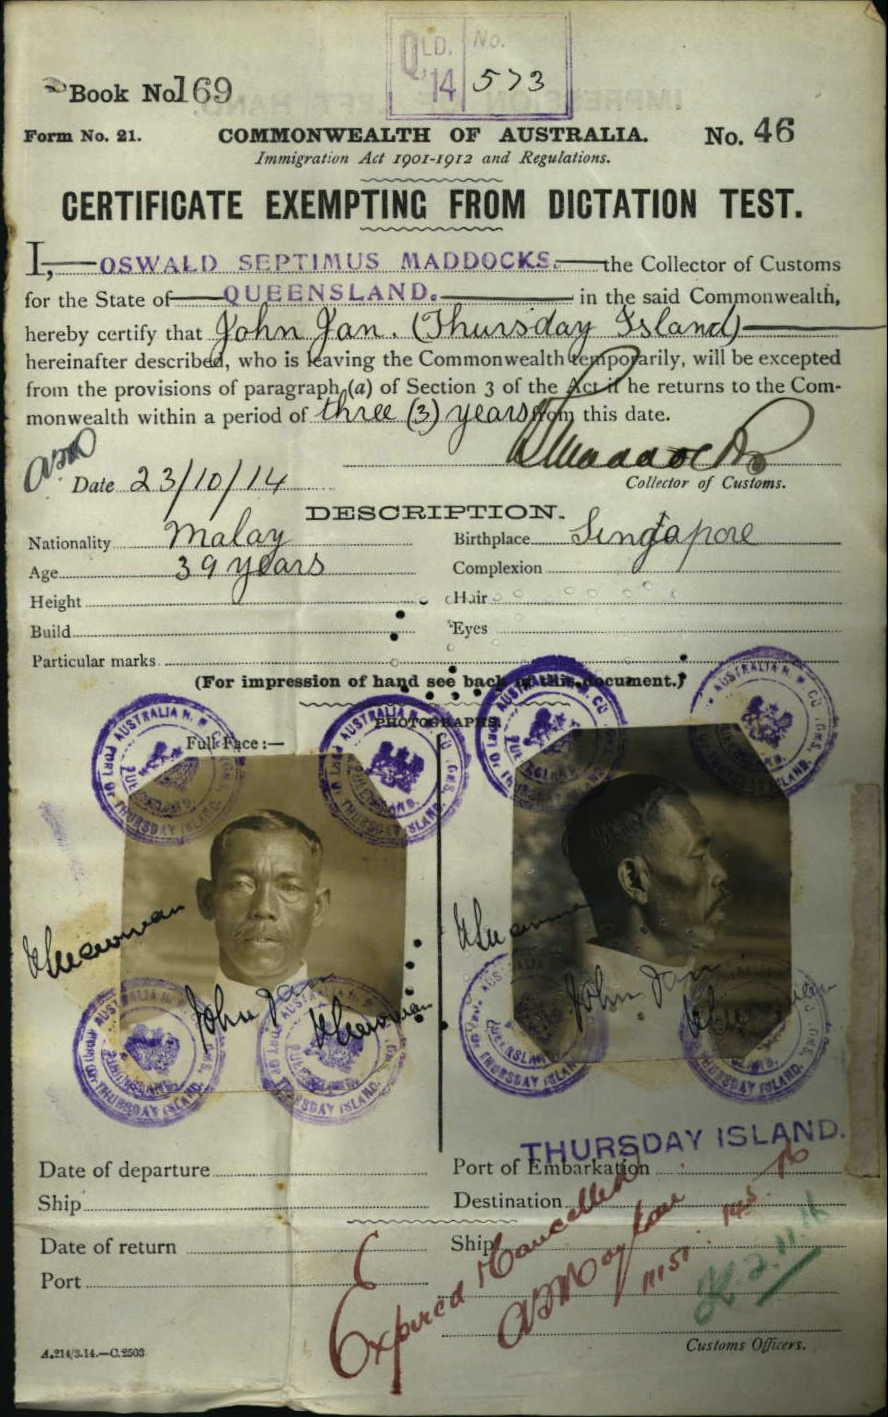 QLD. No.
'14 573
Book No 169
Form No. 21. COMMONWEALTH OF AUSTRALIA. No. 46
Immigration Act 1901-1912 and Regulations.
CERTIFICATE EXEMPTING FROM DICTATION TEST.
I, OSWALD SEPTIMUS MADDOCKS. the Collector of Customs
for the State of QUEENSLAND. in the said Commonwealth,
hereby certify that John Jan. (Thursday Island)
hereinafter described, who is leaving the Commonwealth temporarily, will be excepted
from the provisions of paragraph (a) of Section 3 of the Act if he returns to the Com-
monwealth within a period of three (3) years from this date.
Maddocks
Date 23/10/14 Collector of Customs.
DESCRIPTION.
Nationality Malay Birthplace Singapore
Age 39 years Complexion
Height Hair
Build Eyes
Particular marks
(For impression of hand see back of this document.)
PHOTOGRAPHS.
Full Face :—
AUSTRALIA
THURSDAY ISLAND.
John Jan
John Jan
THURSDAY ISLAND.
Date of departure Port of Embarkation
Ship Destination
Date of return Ship
Port
Expired & Cancelled
Customs Officers.
A.214/3.14.—C.2503